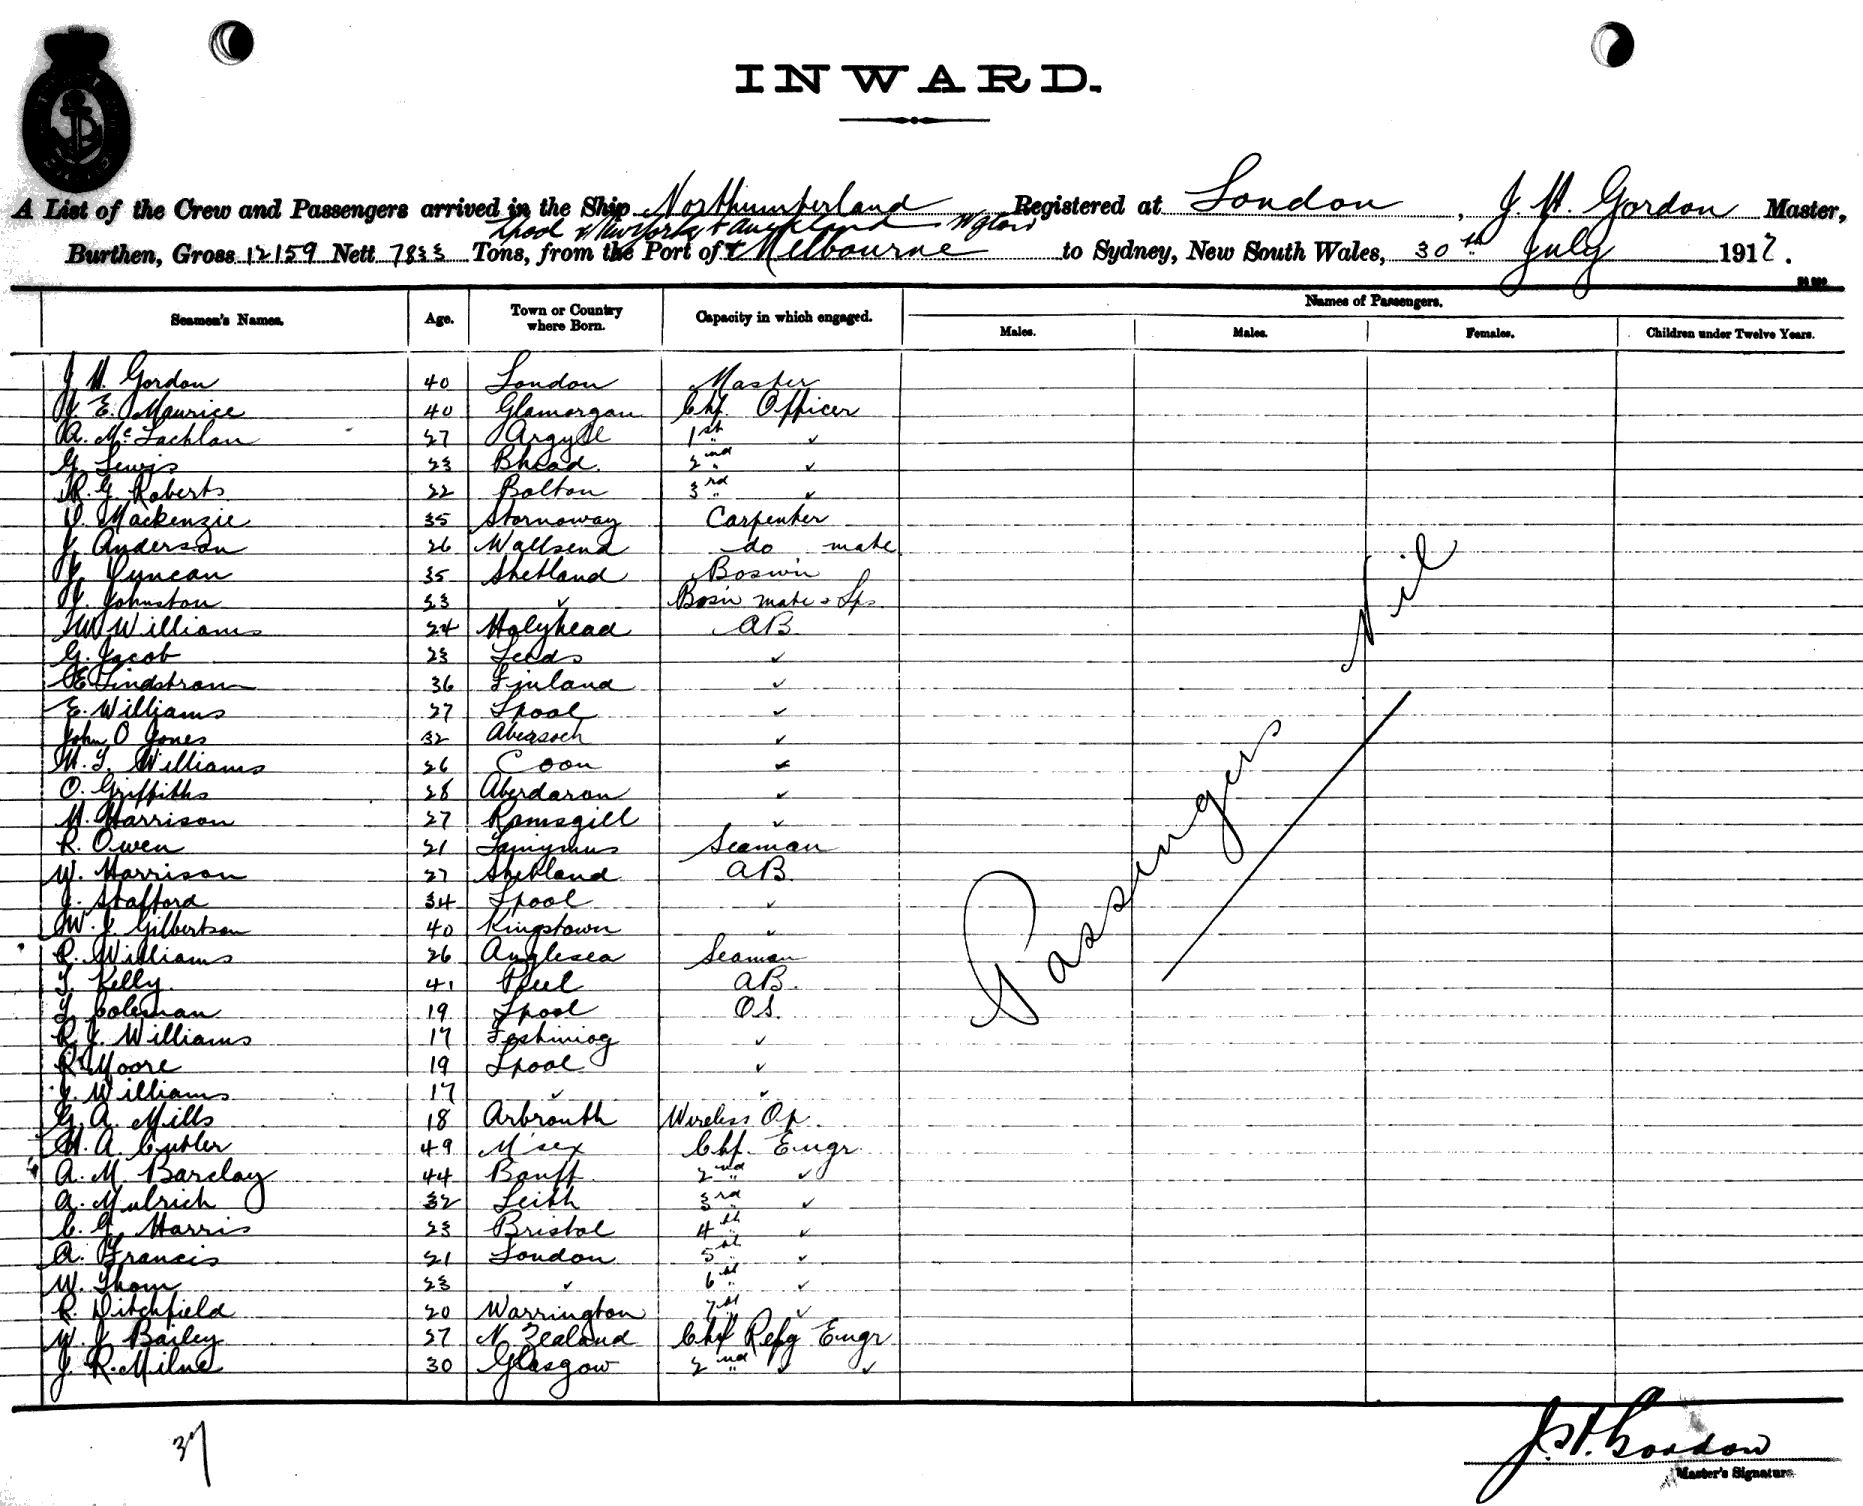 INWARD.
A List of the Crew and Passengers arrived in the Ship Northumberland Registered at London, J. H. Gordon Master,
Lpool & New York & Auckland Wgton
Burthen, Gross 12159 Nett 7833 Tons, from the Port of & Melbourne to Sydney, New South Wales, 30th July 1917.
Names of Passengers.
Seamen's Names. Age. Town or Country where Born. Capacity in which engaged. Males. Males. Females. Children under Twelve Years.
J. H. Gordon 40 London Master
E. Maurice 40 Glamorgan Chf. Officer
A. McLachlan 27 Argyll 1st " ✓
G. Lewis 23 Bhead. 2nd " ✓
R. G. Roberts 22 Bolton 3rd " ✓
D. Mackenzie 35 Stornoway Carpenter
J. Anderson 26 Wallsend do mate
J. Duncan 35 Shetland Boswn
J. Johnston 23 ✓ Bosn mate & Lps
Williams 24 Holyhead AB
G. Jacob 23 Leeds ✓
Lindstrom 36 Finland ✓
E. Williams 27 Lpool ✓
John O Jones 32 Abersoch ✓
Williams 26 Coon ✓
O. Griffiths 28 Aberdaron ✓
H. Harrison 27 Ramsgill ✓
R. Owen 21 Seaman
W. Harrison 27 Shetland AB.
J. Stafford 34 Lpool ✓
W. J. Gilbertson 40 Kingstown ✓
R. Williams 26 Anglesea Seaman
T. Kelly. 41 Peel AB.
Coleman 19 Lpool OS.
R. J. Williams 17 Festiniog ✓
R. Moore 19 Lpool ✓
J. Williams 17 ✓ ✓
G. A. Mills 18 Arbrouth Wireless Op.
H. A. Cutler 49 M'sex Chf. Engr
A. M. Barclay 44 Banff 2nd " ✓
A. Mulrich 32 Leith 3rd " ✓
C. G. Harris 23 Bristol 4th " ✓
A. Francis 21 London 5th " ✓
W. Thom 23 ✓ 6th " ✓
R. Ditchfield 20 Warrington 7th ✓
W. J. Bailey 27 N. Zealand Chf Refg Engr
J. R. Milne 30 Glasgow 2nd " ✓ ✓
Passengers Nil
37
J. H. Gordon
Master's Signature.